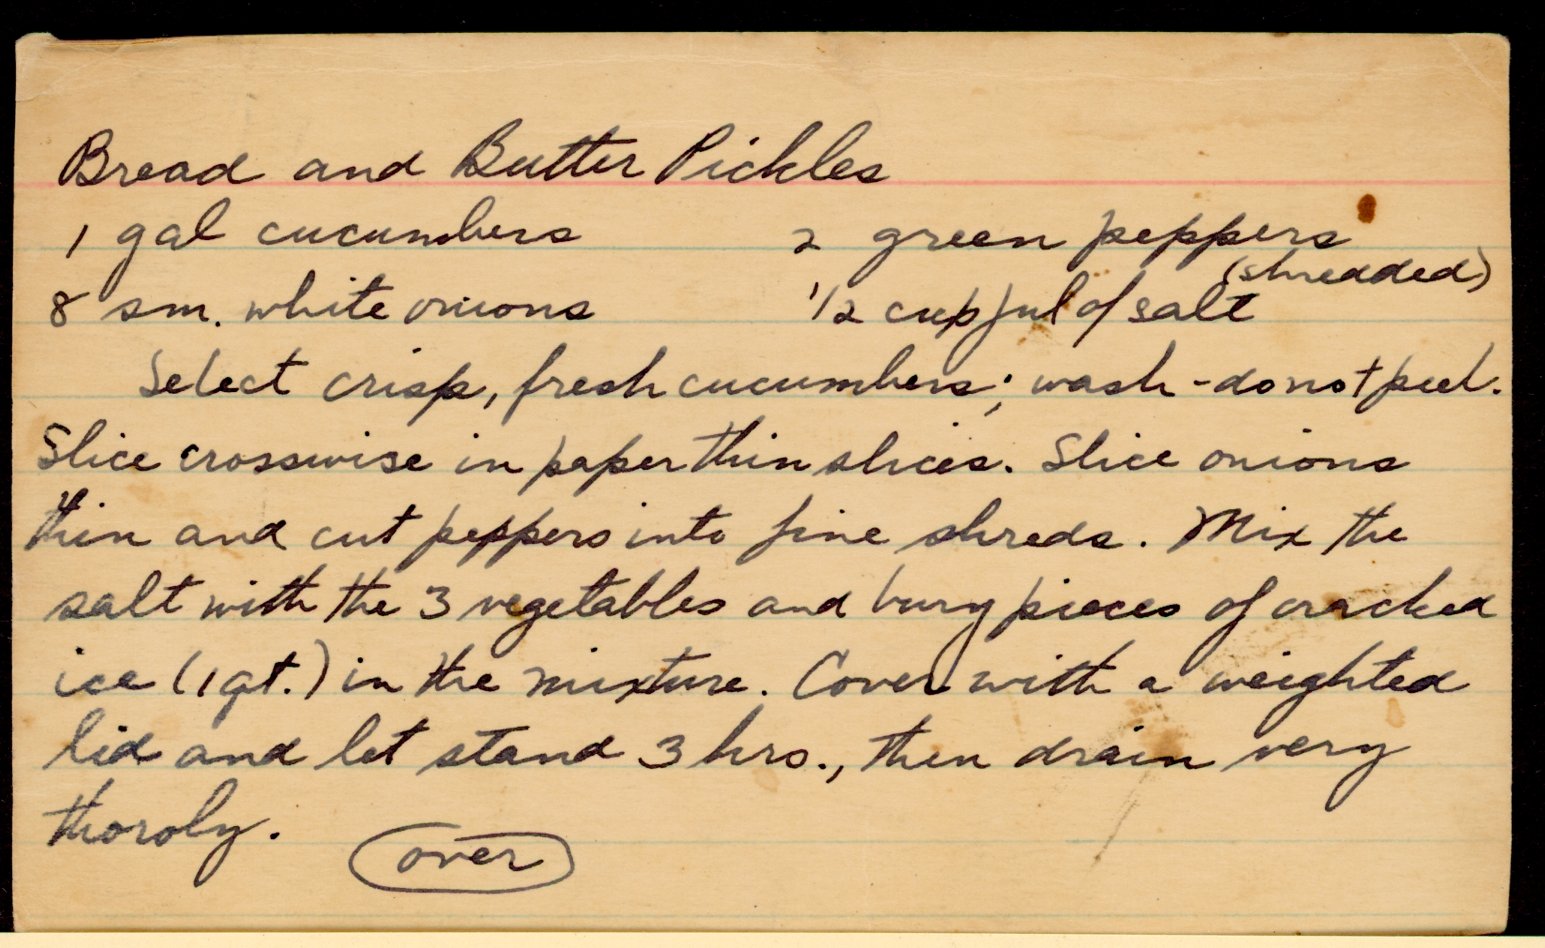 Bread and Butter Pickles
1 gal cucumbers 2 green peppers
(shredded)
8 sm. white onions 1/2 cupful of salt
Select crisp, fresh cucumbers; wash - do not peel.
Slice crosswise in paper thin slices. Slice onions
thin and cut peppers into fine shreds. Mix the
salt with the 3 vegetables and bury pieces of cracked
ice (1 qt.) in the mixture. Cover with a weighted
lid and let stand 3 hrs., then drain very
thoroly.
over